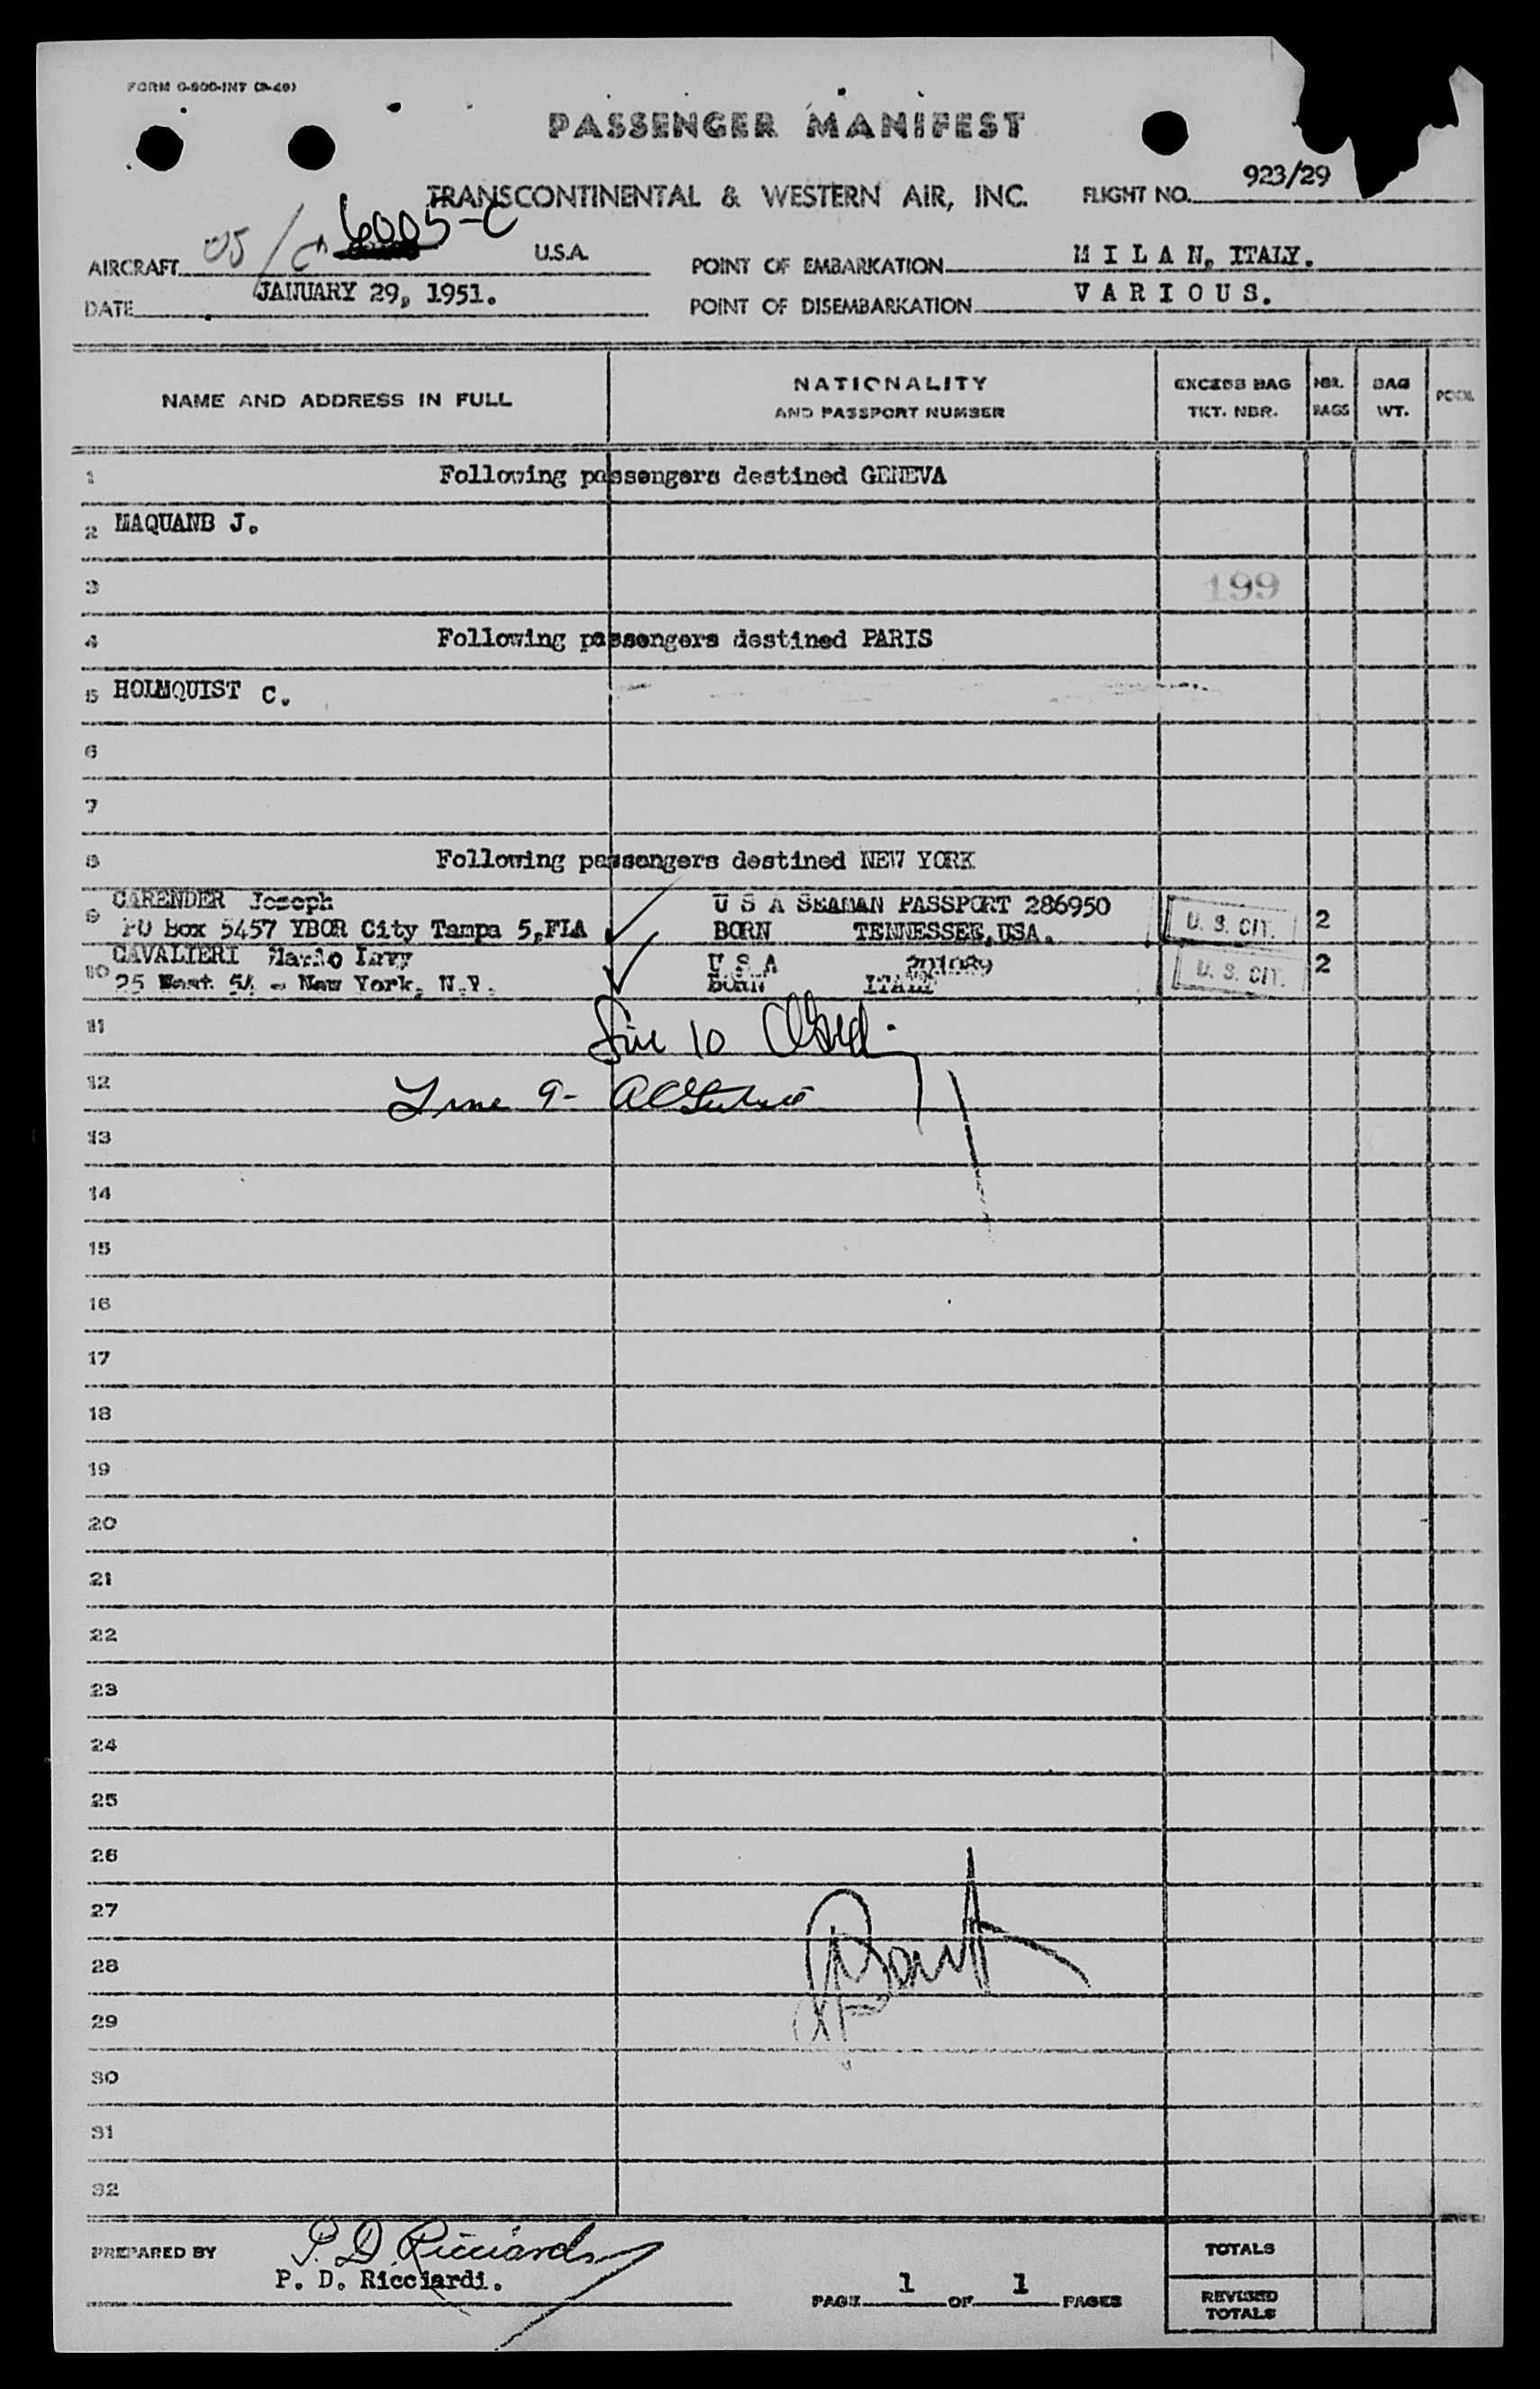 FORM O-800-INT (3-49)
PASSENGER MANIFEST
TRANSCONTINENTAL & WESTERN AIR, INC.
FLIGHT NO. 923/29
AIRCRAFT 05/C 6005-C U.S.A.
POINT OF EMBARKATION M I L A N, ITALY.
DATE JANUARY 29, 1951.
POINT OF DISEMBARKATION V A R I O U S.
NAME AND ADDRESS IN FULL
NATIONALITY
AND PASSPORT NUMBER
EXCESS BAG
TKT. NBR.
NBR.
BAGS
BAG
WT.
1 Following passengers destined GENEVA
2 MAQUANB J.
3 199
4 Following passengers destined PARIS
5 HOLMQUIST C.
6
7
8 Following passengers destined NEW YORK
9 CARENDER Joseph U S A SEAMAN PASSPORT 286950 U. S. CIT. 2
PO Box 5457 YBOR City Tampa 5,FLA BORN TENNESSEE,USA.
10 CAVALIERI U S A 201089 U. S. CIT. 2
25 West 54 - New York, N.Y. BORN ITALY
11 Line 10
12 Line 9-
13
14
15
16
17
18
19
20
21
22
23
24
25
26
27
28
29
30
31
32
PREPARED BY P. D. Ricciardi
P. D. Ricciardi.
PAGE 1 OF 1 PAGES
TOTALS
REVISED
TOTALS